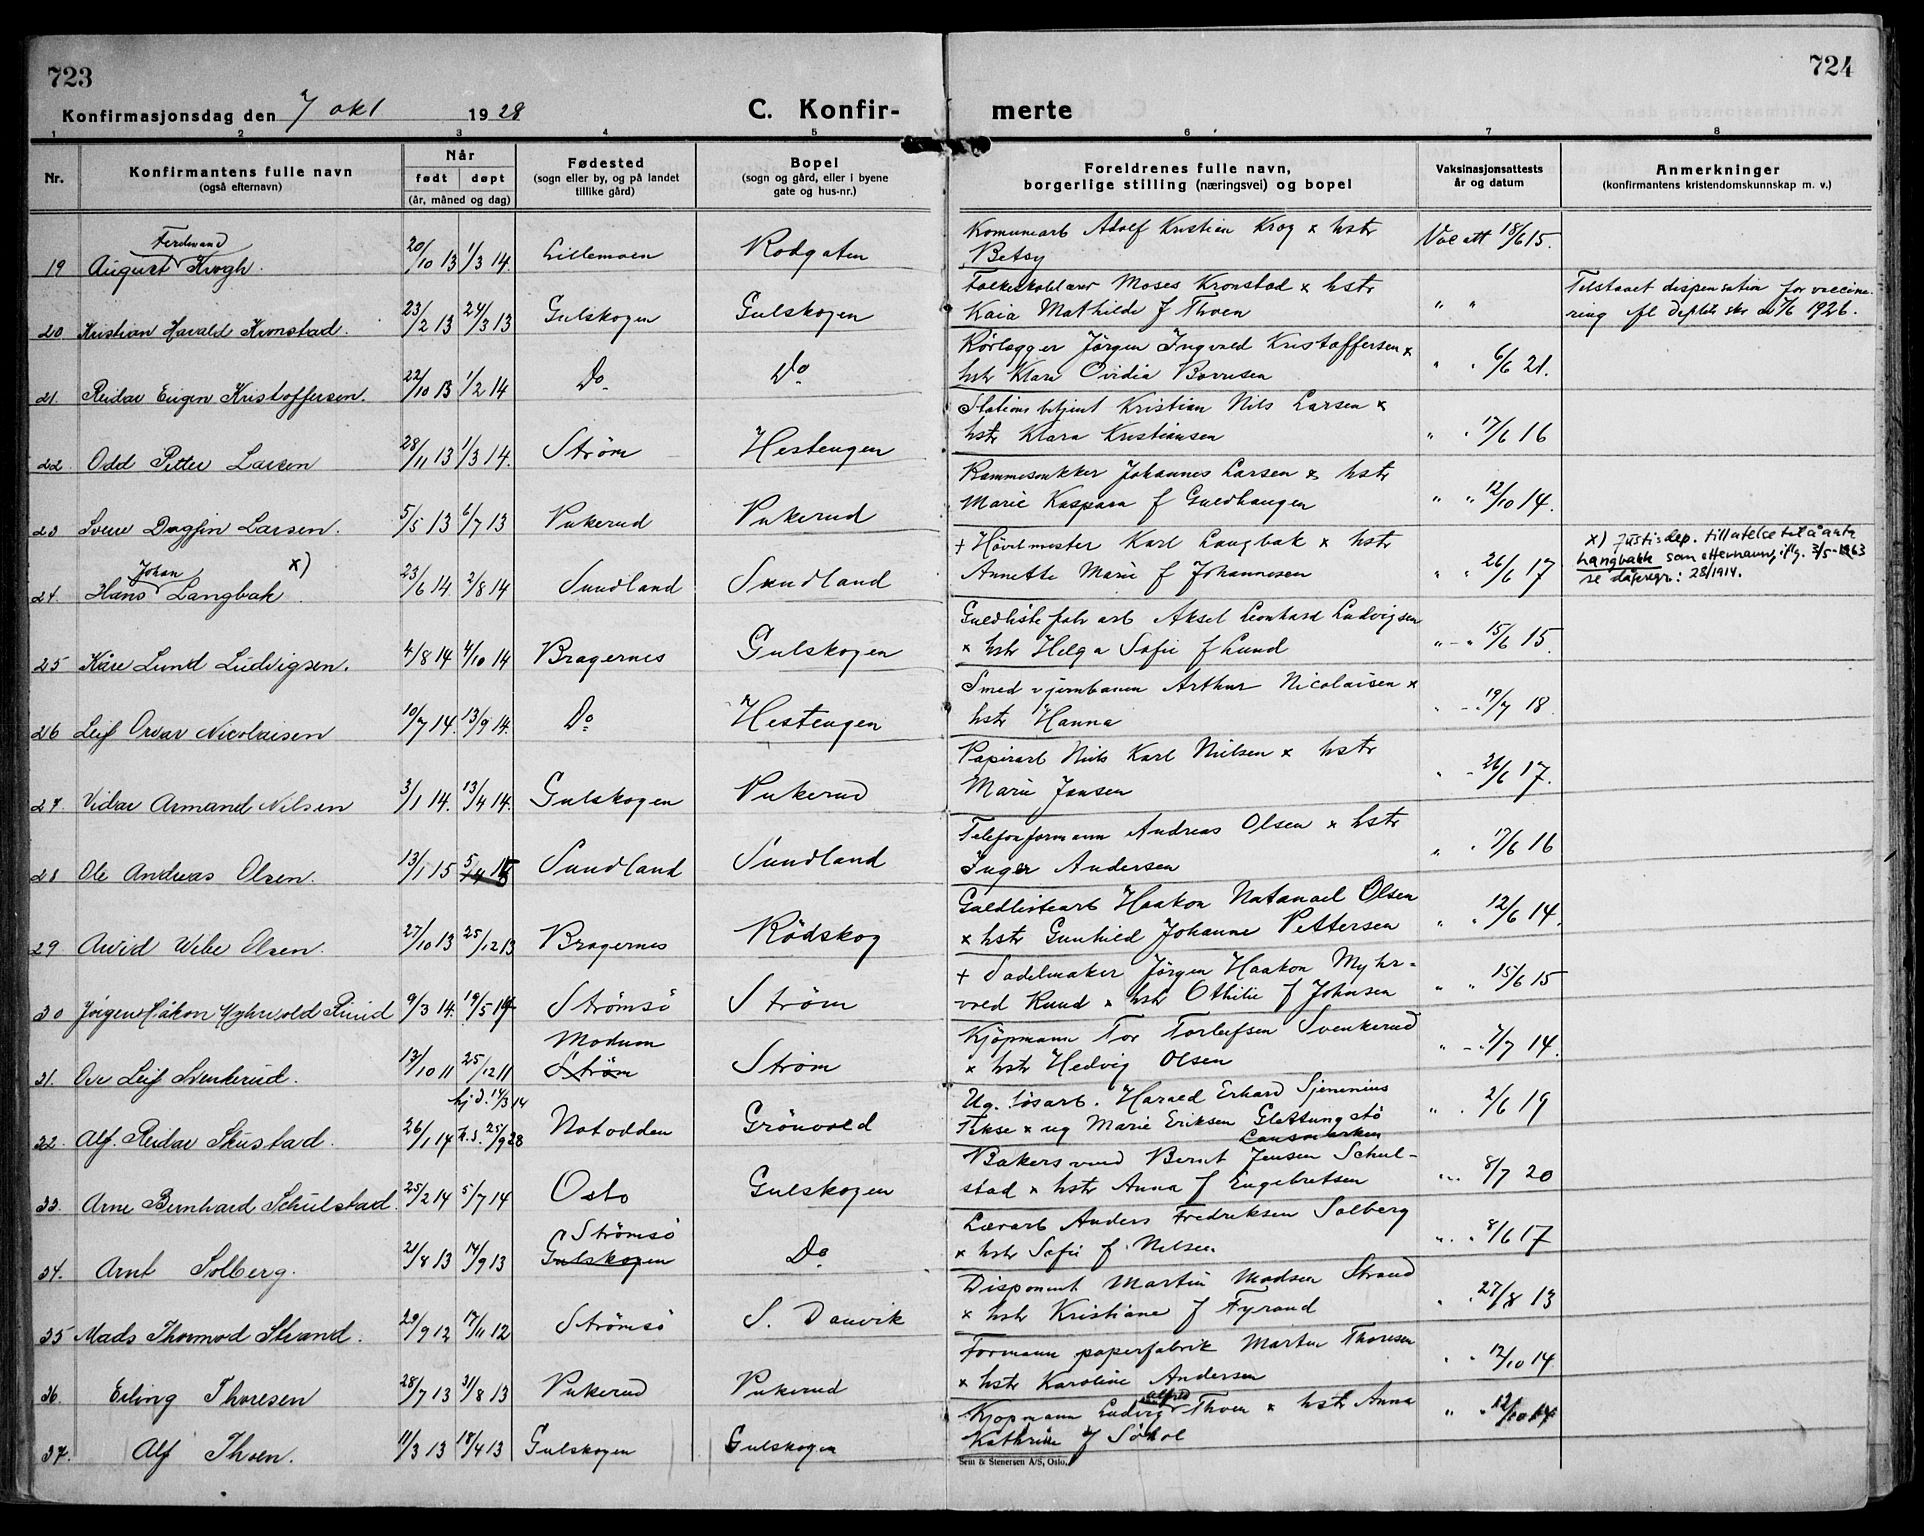 723
724
Konfirmasjonsdag den 7 okt 1928
C. Konfir-
merte
1 2 3 4 5 6 7 8
Nr.
Konfirmantens fulle navn
(også efternavn)
Når
født døpt
(år, måned og dag)
Fødested
(sogn eller by, og på landet
tillike gård)
Bopel
(sogn og gård, eller i byene
gate og hus-nr.)
Foreldrenes fulle navn,
borgerlige stilling (næringsvei) og bopel
Vaksinasjonsattests
år og datum
Anmerkninger
(konfirmantens kristendomskunnskap m. v.)
Ferdinand
19 August Krogh. 20/10 13 1/3 14. Lillemoen Rodgaten
Komunearb Adolf Kristian Krog x hstr
Betsy
Vac att 18/6 15.
20 Kristian Harald Kronstad. 23/2 13 24/3 13 Gulskogen Gulskogen
Folkeskolelærer Moses Kronstad x hstr
Kaia Mathilde f Thoen
" "
Tilstaaet dispensation for vaccine-
ring 1926.
21. Reidar Eugen Kristoffersen. 22/10 13 1/2 14 Do Do
Rørlægger Jörgen Ingvald Kristoffersen x
hstr Klara Ovidia Borresen
" " 6/6 21.
22. Odd Petter Larsen 28/11 13 1/3 14. Strøm Hestengen
Stations betjent Kristian Nils Larsen x
hstr Klara Kristiansen
" " 17/6 16
23 Sverre Dagfin Larsen. 5/5 13 6/7 13 Pukerud Pukerud
Rammesnekker Johannes Larsen x hstr
Marie Kaspara f Guldhaugen
" " 12/10 14.
Johan x)
24. Hans Langbak. 23/6 14. 2/8 14 Sundland Sundland
+ Høvelmester Karl Langbak x hstr
Annette Marie f Johannesen
" " 26/6 17
x) Justisdep. tillatelse til å anta
Langbakk som etternavn, iflg. 3/5-1963
se dåpsregr: 28/1914.
25 Kåre Lund Ludvigsen. 4/8 14 4/10 14 Bragernes Gulskogen
Guldliste fabr arb Aksel Leonhard Ludvigsen
x hstr Helga Sofie f Lund
" - " 15/6 15.
26 Leif Orvar Nicolaisen 10/7 14. 13/9 14. Do Hestengen
Smed v jernbanen Arthur Nicolaisen x
hstr Hanna
" - " 19/7 18.
27. Vidar Armand Nilsen 3/1 14. 13/4 14. Gulskogen Pukerud
Papirarb Nils Karl Nielsen x hstr
Marie Jansen
" - 26/6 17.
28 Ole Andreas Olsen. 13/1 15 5/4 15 Sundland Sundland
Telefonformann Andreas Olsen x hstr
Inger Andersen
" " 17/6 16
29 Arvid Wibe Olsen. 27/10 13 25/12 13 Bragernes Rödskog
Guldlistearb Haakon Natanael Olsen
x hstr Gunhild Johanne Pettersen
" " 12/6 14.
30 Jörgen Håkon Myhrvold Ruud 9/3 14. 19/5 14 Strömsö Strøm
+ Sadelmaker Jörgen Haakon Myhr-
vold Ruud x hstr Othilie f Johnsen
" " 15/6 15
Modum
31. Ove Leif Svenkerud. 13/10 11 25/12 11 Strøm Strøm
Kjöpmann Tor Torleifsen Svenkerud
x hstr Hedvig Olsen
" - " 7/7 14.
hj. d. 14/3 14
32. Alf Reidar Skustad. 26/1 14 K.S. 25/9 28 Notodden Grönvold
Ug. lösarb. Harald Erhard Sjenenius
Tekse x ug Marie Eriksen
" . 2/6 19
33. Arne Bernhard Schulstad. 25/2 14 5/7 14 Oslo Gulskogen
Bakersvend Bernt Jensen Schul-
stad x hstr Anna f Engebretsen
" . . 8/7 20
Strömsö
34. Arnt Solberg. 21/8 13 14/9 13 Gulskogen Do
Lærarb Anders Fredriksen Solberg
x hstr Sofie f. Nilsen
" . " 8/6 17
35 Mads Thormod Strand. 29/9 12 17/11 12 Strömsö S. Danvik
Disponent Martin Madsen Strand
x hstr Kristiane f Fyrand
" . 27/8 13
36. Erling Thoresen 28/7 13 31/8 13 Pukerud Pukerud
Formann paperfabrik Martin Thoresen
x hstr Karoline Andersen
" " 12/10 14
37. Alf Thoen. 11/3 13 18/4 13 Gulskogen Gulskogen
Alfred
Kjopmann Ludvig Thoen x hstr Anna
Kathrine f Söhol
" " 12/10 14
Sem & Stenersen A/S, Oslo.